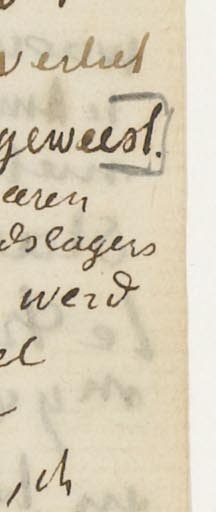 verliet
geweest.
aren
dslagers
werd
el
, ik